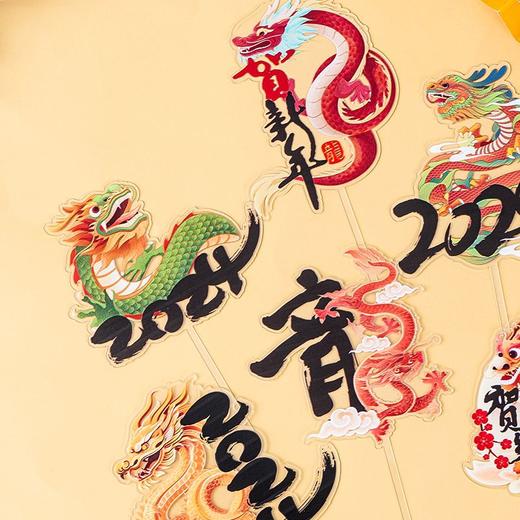 贺新年
2024
202
龍
2024
贺